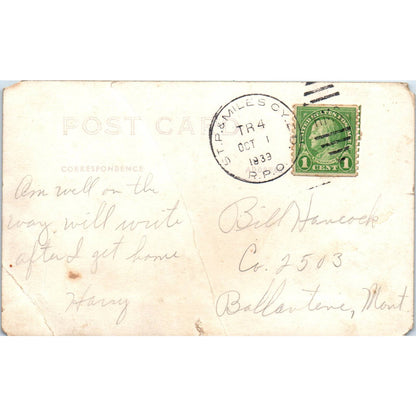 POST CARD
ST.P. & MILES CY.
TR 4
OCT 1
1933
R.P.O.
UNITED STATES POSTAGE
1 CENT 1
CORRESPONDENCE
Am well on the
way will write
after I get home
Harry
Bill Hancock
Co. 2503
Ballantine, Mont.